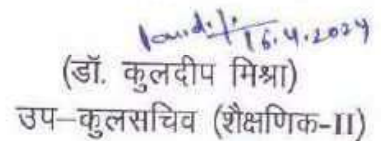 16.4.2024
(डॉ. कुलदीप मिश्रा)
उप-कुलसचिव (शैक्षणिक-II)